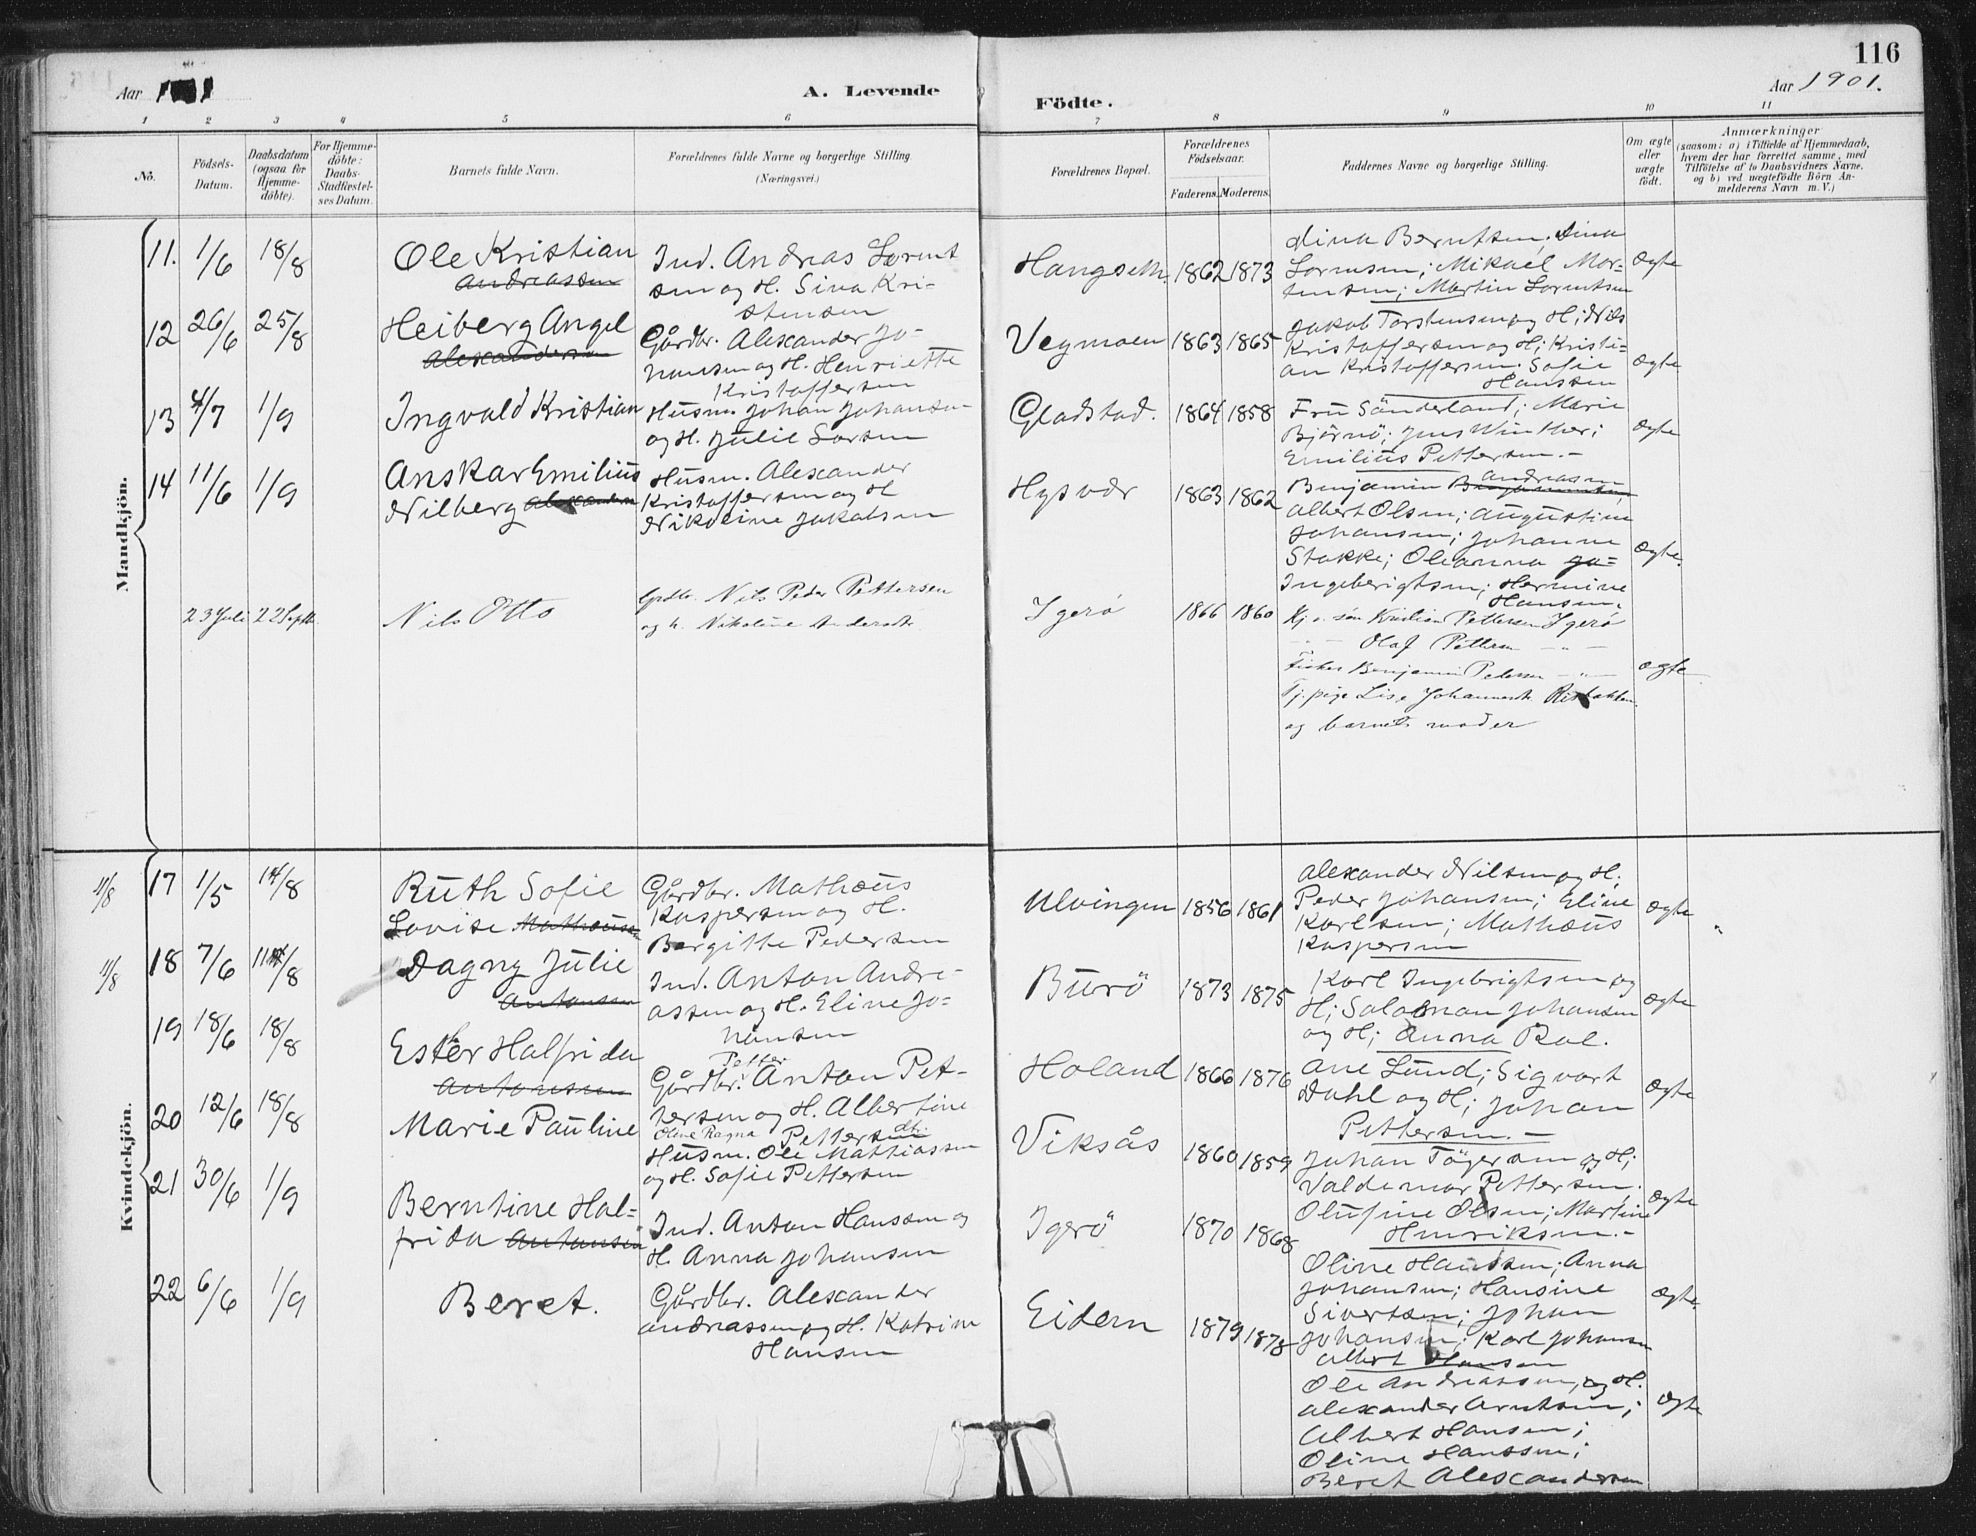 116
Aar 1901
A. Levende
Födte.
Aar 1901.
1 2 3 4 5 6 7 8 9 10 11
No.
Födsels-
Datum.
Daabsdatum
(ogsaa for
Hjemme-
döbte).
For Hjemme-
döbte:
Daabs-
Stadfæstel-
ses Datum.
Barnets fulde Navn.
Forældrenes fulde Navne og borgerlige Stilling.
(Næringsvei.)
Forældrenes Bopæl.
Forældrenes
Födselsaar.
Faderens. Moderens.
Faddernes Navne og borgerlige Stilling.
Om ægte
eller
uægte
födt.
Anmærkninger
(saasom: a) i Tilfælde af Hjemmedaab,
hvem der har forrettet samme, med
Tilföielse af to Daabsvidners Navne,
og b) ved uægtefödte Börn An-
melderens Navn m. V.)
Mandkjön.
11. 1/6 18/8 Ole Kristian
Andreassen
Ind. Andreas Lornt
sen og H. Sina Kri-
stensen
Hangseth. 1862 1873
Dina Berntsen; Dina
Lorntsen; Mikael Mor-
tensen; Martin Lorentsen
Ægte
12 26/6 25/8 Heiberg Angel
Alexandersen
Gårdbr. Alexander Jo-
hansen og H. Henriette
Kristoffersen
Vegmoen 1863 1865
Jakob Torstensen og H; Nils
Kristoffersen og H; Kristi-
an Kristoffersen. Sofie
Hanssen
Ægte
13 4/7 1/9 Ingvald Kristian
Husm. Johan Johansen
og H. Julie Larsen
Gladstad. 1864 1858
Fru Sönderland; Marie
Björnö; Jens Winther;
Emilius Pettersen.-
Ægte
14 11/6 1/9 Anskar Emilius
Nilberg Alexandersen
Husm. Alexander
Kristoffersen og H
Nikoline Jakobsen
Hysvær 1863 1862
Andreassen
Benjamin Benjaminsen,
Albert Olsen; Augustine
Johansen; Johanne
Stokke; Oleanna Jo-
Ingeberigtsen; Hermine
Hansen.
Ægte.
23 Juli 22 Septb. Nils Otto
Grdbr. Nils Peder Pettersen
og h. Nikoline Andersdt.
Igerö 1866 1860
Kj. o. søn Kristian Pettersen Igerö
- " - Olaf Pettersen - " -
Fisker Benjamin Pedersen - " -
Tj. pige Lise Johannesdt.
og barnets moder
ægte
Kvindekjön.
11/8 17 1/5 14/8 Ruth Sofie
Lovise Mathæussen
Gårdbr. Mathæus
Kaspersen og H.
Bergitte Pedersen
Ulvingen 1856 1861
Alexander Nilsen og H;
Peder Johansen; Eline
Karlsen; Mathæus
Kaspersen
Ægte
11/8 18 7/6 11/8 Dagny Julie
Antonsen
Ind. Anton Andre-
assen og H. Eline Jo-
hansen
Burö 1873 1875
Karl Ingebrigtsen og
H; Salomon Johansen
og H; Anna Rol.
Ægte
19 18/6 18/8 Ester Halfrida
Antonsen
Petter
Gårdbr. Anton Pet-
tersen og H. Albertine
Oline Ragna Pettersen dtr.
Holand 1866 1876
Ane Lund; Sigvart
Dahl og H; Johan
Pettersen.-
Ægte
20 12/6 18/8 Marie Pauline
Husm. Ole Mathiassen
og H. Sofie Pettersen
Viksås 1860 1859
Johan Tögersen og H;
Valdemar Pettersen.
Olufine Olsen; Martine
Henriksen.-
Ægte
21 30/6 1/9 Berntine Hal-
frida Antonsen
Ind. Anton Hanssen og
H. Anna Johansen
Igerö 1870 1868
Oline Hanssen; Anna
Johansen; Hansine
Sivertsen; Johan
Johansen; Karl Johansen
Albert Hansen
Ægte
22 6/6 1/9 Beret.
Gårdbr. Alexander
Andreassen og H. Katrine
Hansen
Eidem 1879 1878
Ole Andreassen, og H.
Alexander Arntsen;
Albert Hansen;
Oline Hanssen;
Beret Alexandersen
Ægte